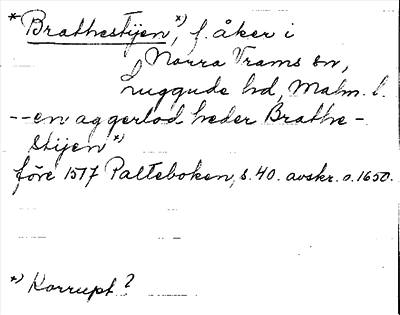 *Brathestijen,*) f. åker i
Norra Vrams sn,
Luggude hd, Malm. l.
--en aggerlod heder Brathe-
Stijen*)
före 1517 Palteboken, s. 40. avskr. o. 1650.
*) Korrupt?